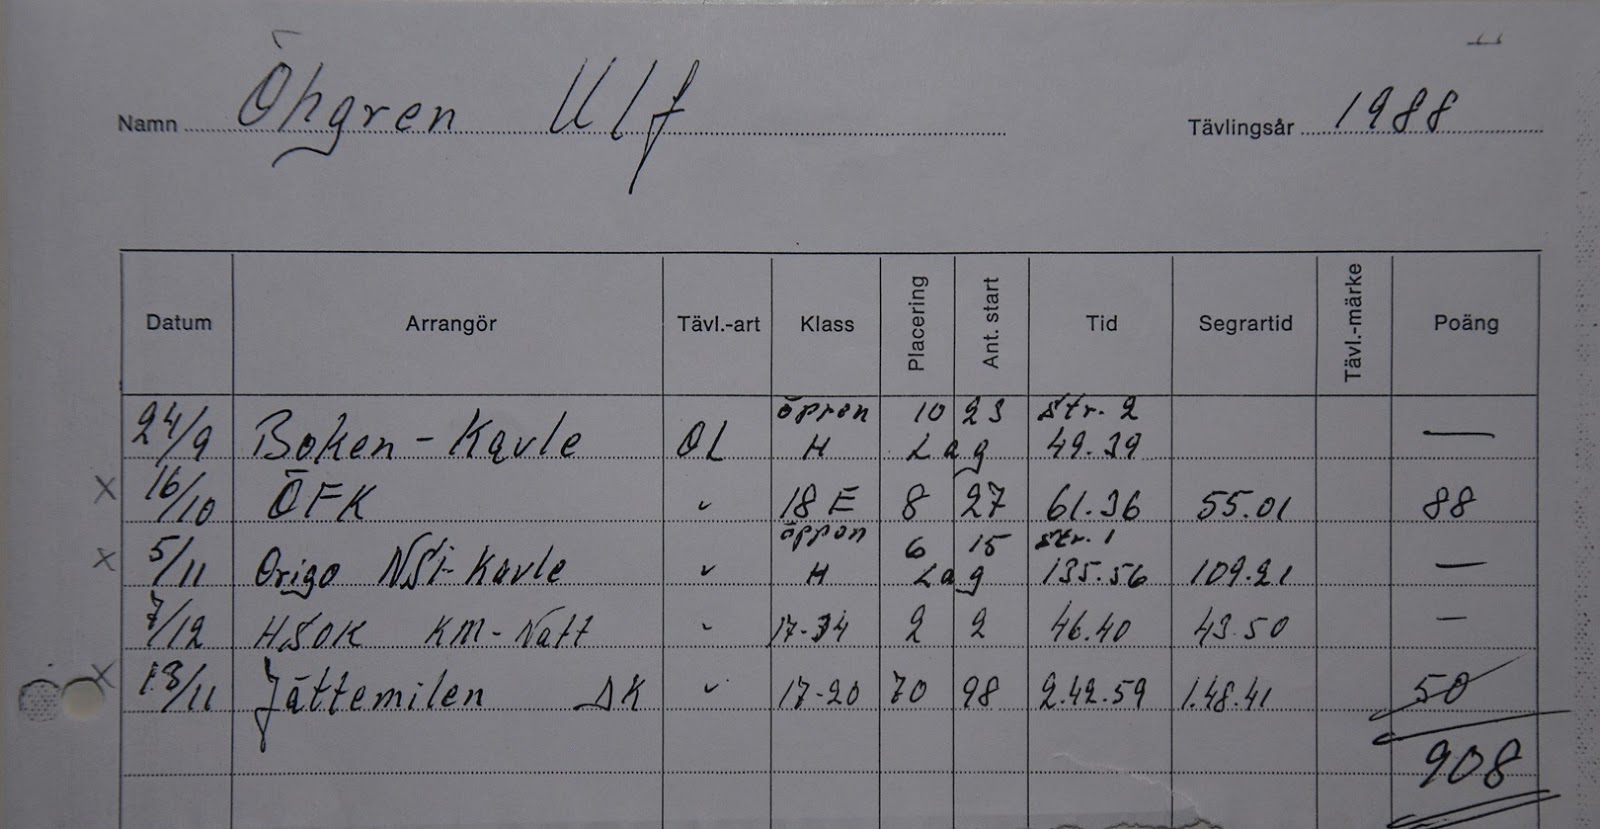 Namn Öhgren Ulf Tävlingsår 1988
Datum Arrangör Tävl.-art Klass Placering Ant. start Tid Segrartid Tävl.-märke Poäng
öppen 10 23 str. 2
24/9 Boken - Kavle OL H Lag 49.39 —
x 16/10 ÖFK " 18 E 8 27 61.36 55.01 88
öppen 6 15 str. 1
x 5/11 Origo Kavle " H Lag 135.56 109.21 —
7/12 HSOK KM-Natt " 17-34 2 2 46.40 43.50 —
x 13/11 Jättemilen " 17-20 70 98 2.42.59 1.48.41 50
908